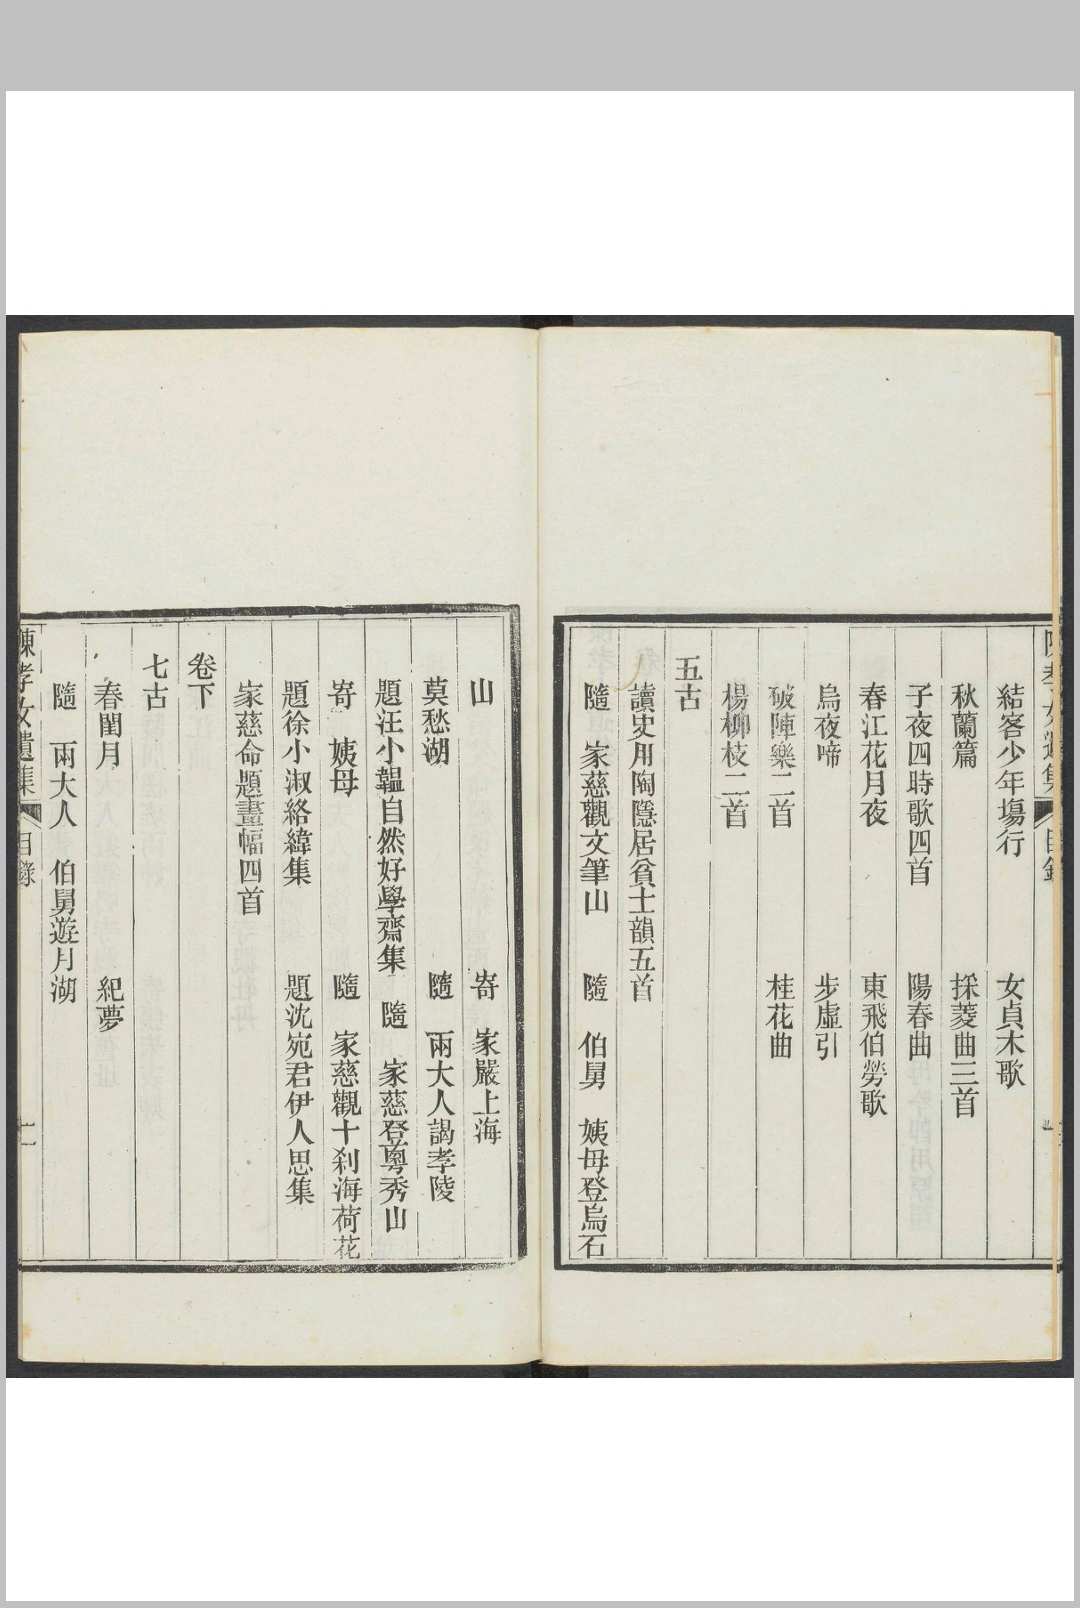 結客少年塲行　女貞木歌
秋蘭篇　採菱曲三首
子夜四時歌四首　陽春曲
春江花月夜　東飛伯勞歌
烏夜啼　步虛引
破陣樂二首　桂花曲
楊柳枝二首
五古
讀史用陶隱居貧士韻五首
隨　家慈觀文筆山　隨　伯舅　姨母登烏石
山　寄　家嚴上海
莫愁湖　隨　兩大人謁孝陵
題汪小韞自然好學齋集　隨　家慈登粵秀山
寄　姨母　隨　家慈觀十刹海荷花
題徐小淑絡緯集　題沈宛君伊人思集
家慈命題畫幅四首
卷下
七古
春閨月　紀夢
隨　兩大人　伯舅遊月湖
陳孝女遺集　目錄　二